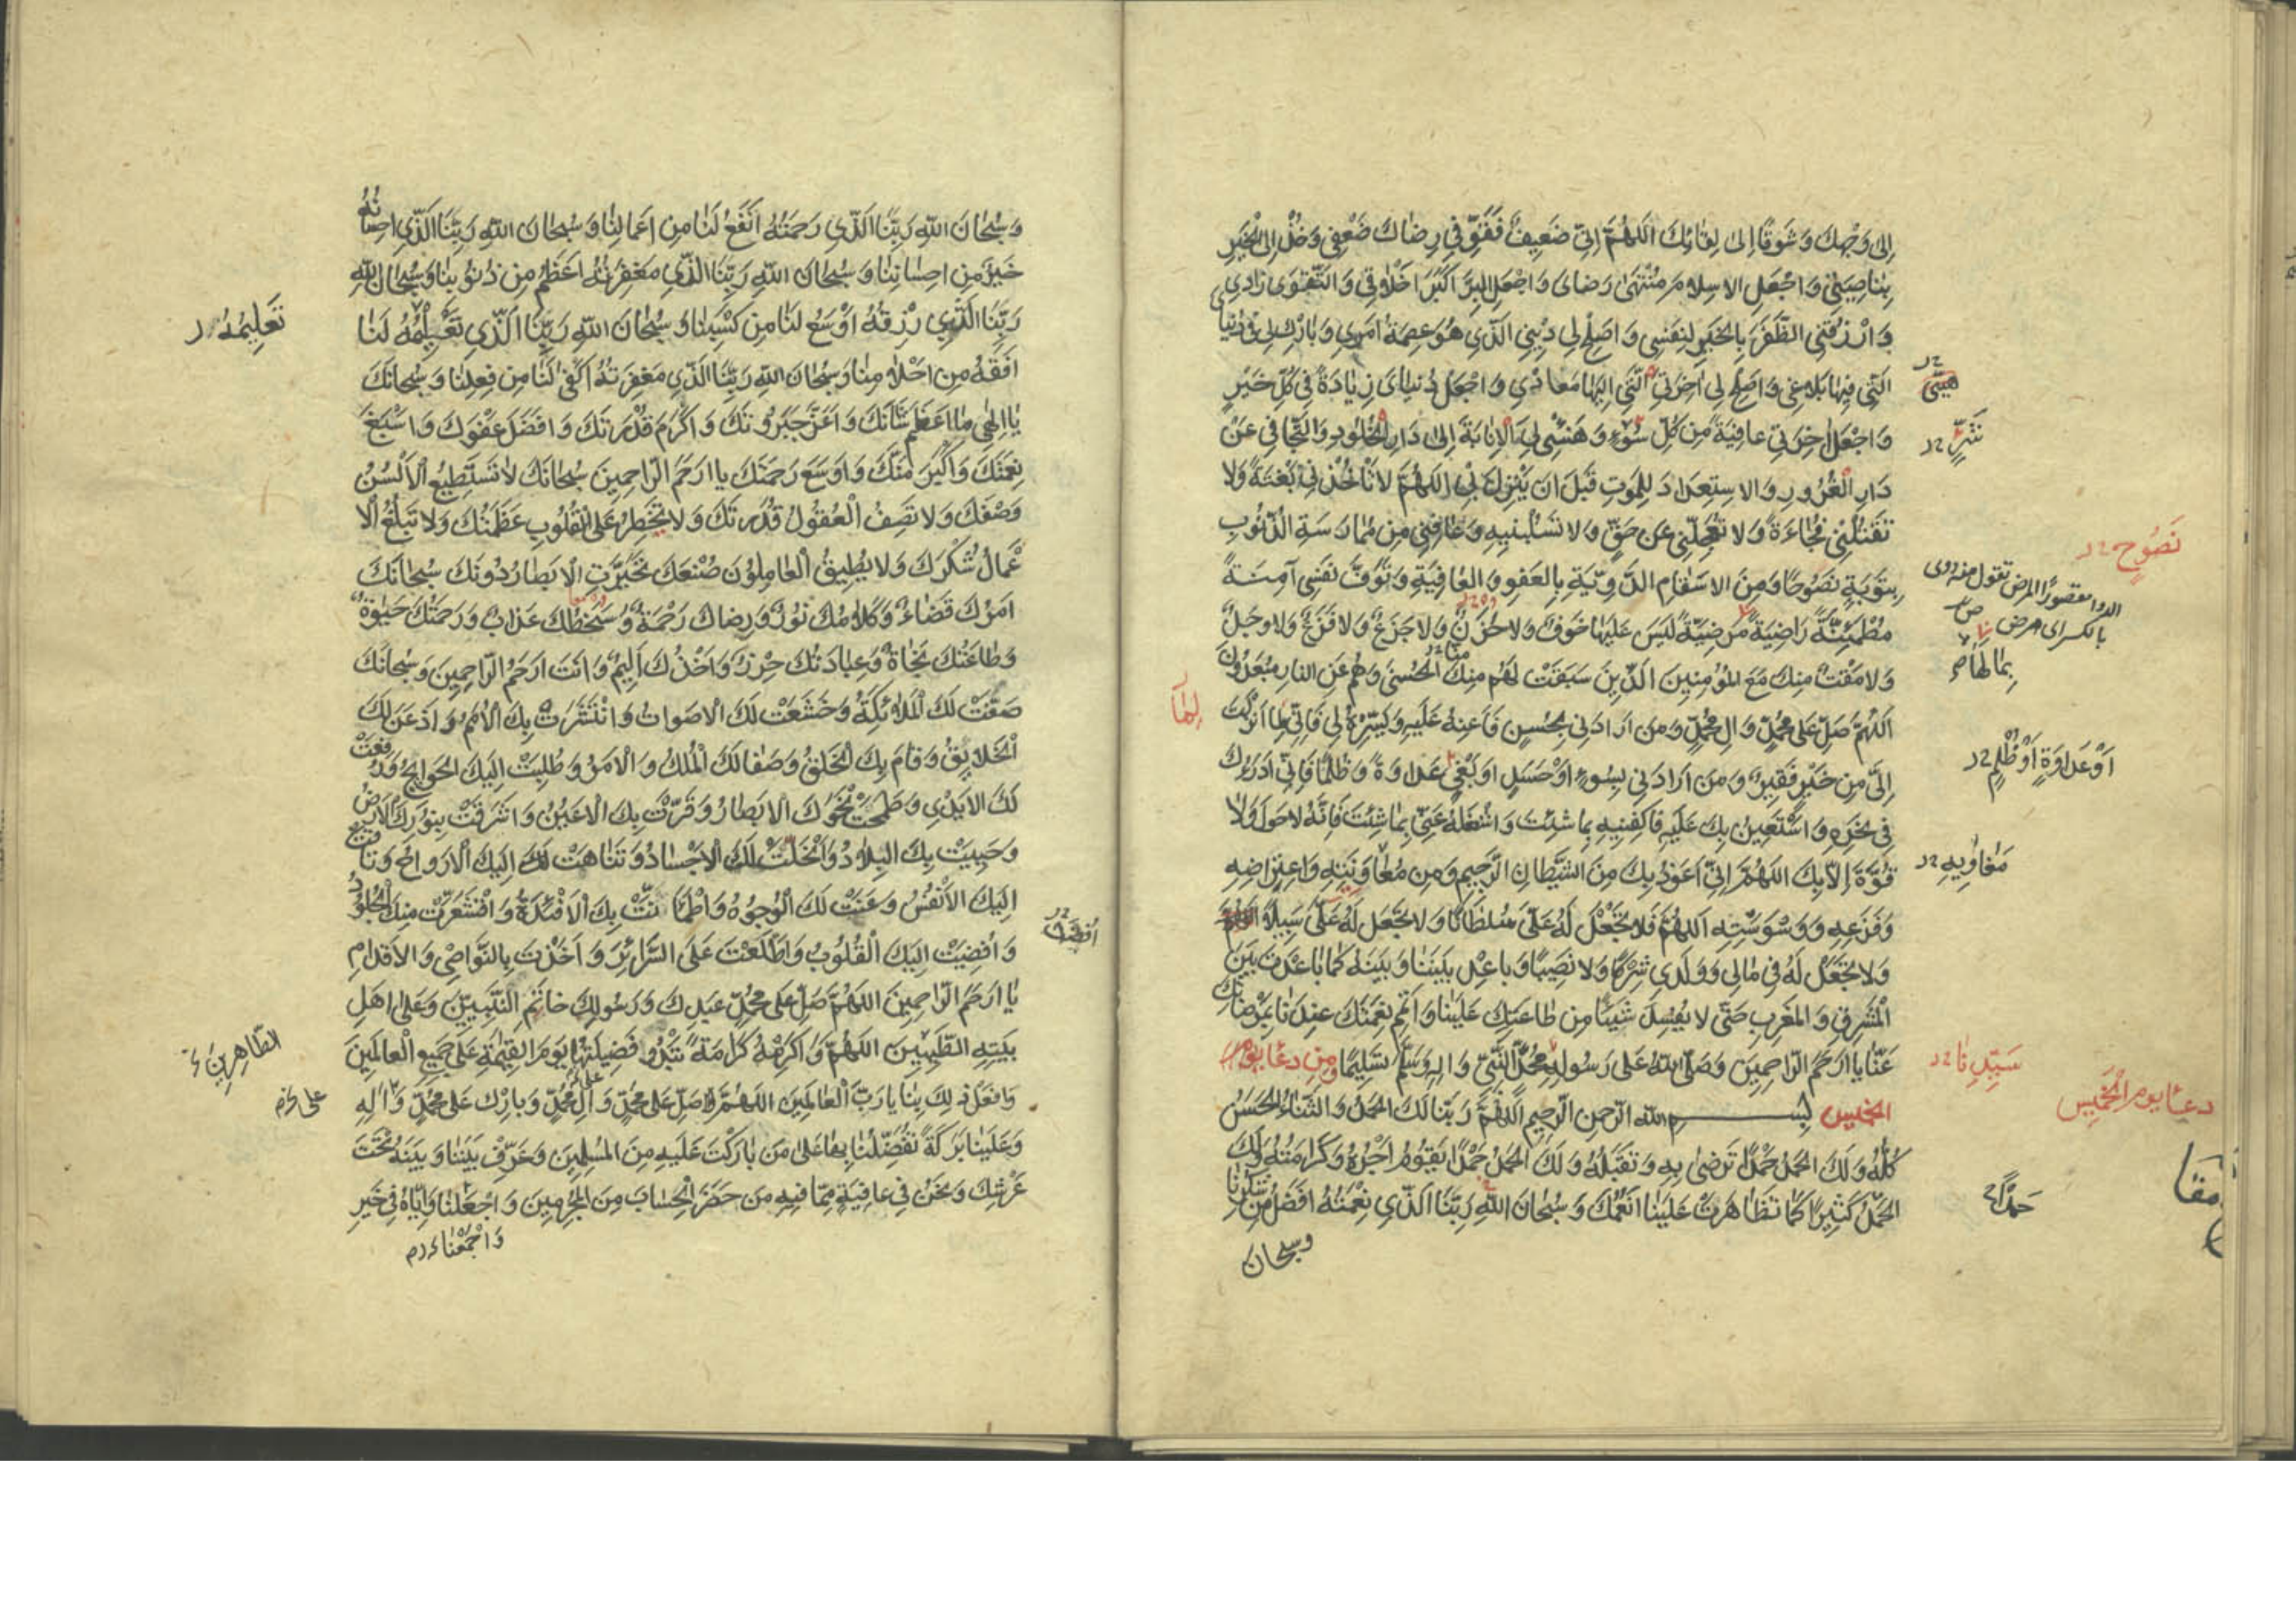 إِلى وَجْهِكَ وَشَوْقًا إِلى لِقائِكَ اَللّهُمَّ اِنّي ضَعيفٌ فَقَوِّ في رِضاكَ ضَعْفي وَخُذْ اِلَى الْخَيْرِ
بِناصِيَتي وَاجْعَلِ الاِسلامَ مُنْتَهى رِضاىَ وَاجْعَلِ البِرَّ اَكْبَرَ اَخْلاقي وَالتَّقْوى زادي
وَارْزُقْنِي الظَّفَرَ بِالخَيْرِ لِنَفْسي وَاَصْلِحْ لي ديني الَّذي هُوَ عِصْمَةُ اَمْري وَبارِكْ لي في دُنْيايَ
الَّتي فيها بَلاغي وَاَصْلِحْ لي آخِرَتي الَّتي اِلَيْها مَعادي وَاجْعَلْ دُنْيايَ زِيادَةً في كُلِّ خَيْرٍ
وَاجْعَلْ آخِرَتي عافِيَةً مِنْ كُلِّ سُوءٍ وَهَيِّئْ لي الاِنابَةَ اِلى دارِ الخُلُودِ وَالتَّجافي عَنْ
دارِ الْغُرُورِ وَالاِسْتِعْدادَ لِلمَوْتِ قَبْلَ اَنْ يَنْزِلَ بي اَللّهُمَّ لا تَأْخُذْني بَغْتَةً وَلا
تَقْتُلْني فُجاءَةً وَلا تُعَجِّلْني عَنْ حَقٍّ وَلا تَسْلُبْنيهِ وَعافِني مِنْ مُمارَسَةِ الذُّنُوبِ
بِتَوْبَةٍ نَصُوحًا وَمِنَ الاَسْقامِ الدَّوِيَّةِ بِالعَفْوِ وَالعافِيَةِ وَتَوَفَّ نَفْسي آمِنَةً
مُطْمَئِنَّةً راضِيَةً مَرْضِيَّةً لَيْسَ عَلَيْها خَوْفٌ وَلا حُزْنٌ وَلا جَزَعٌ وَلا فَزَعٌ وَلا وَجَلٌ
وَلا مَقْتٌ مِنْكَ مَعَ المُؤْمِنينَ الَّذينَ سَبَقَتْ لَهُمْ مِنْكَ الْحُسْنى وَهُمْ عَنِ النّارِ مُبْعَدُونَ
اَللّهُمَّ صَلِّ عَلى مُحَمَّدٍ وَآلِ مُحَمَّدٍ وَمَنْ اَرادَني بِحُسْنٍ فَاَعِنْهُ عَلَيْهِ وَيَسِّرْهُ لي فَاِنّي لِما اَنْزَلْتَ
اِلَيَّ مِنْ خَيْرٍ فَقيرٌ وَمَنْ اَرادَني بِسُوءٍ اَوْ حَسَدٍ اَوْ بَغْيٍ عَداوَةً وَظُلْمًا فَاِنّي اَدْرَؤُكَ
في نَحْرِهِ وَاَسْتَعينُ بِكَ عَلَيْهِ فَاكْفِنيهِ بِما شِئْتَ وَاشْغَلْهُ عَنّي بِما شِئْتَ فَاِنَّهُ لا حَوْلَ وَلا
قُوَّةَ اِلاّ بِكَ اَللّهُمَّ اِنّي اَعُوذُ بِكَ مِنَ الشَّيْطانِ الرَّجيمِ وَمِنْ مُعاوَنَتِهِ وَاعْتِراضِهِ
وَفَزَعِهِ وَوَسْوَسَتِهِ اَللّهُمَّ فَلا تَجْعَلْ لَهُ عَلَيَّ سُلْطانًا وَلا تَجْعَلْ لَهُ عَلَيَّ سَبيلاً
وَلا تَجْعَلْ لَهُ في مالي وَوَلَدي شِرْكًا وَلا نَصيبًا وَباعِدْ بَيْنَنا وَبَيْنَهُ كَما باعَدْتَ بَيْنَ
الْمَشْرِقِ وَالمَغْرِبِ حَتّى لا يُفْسِدَ شَيْئًا مِنْ طاعَتِكَ عَلَيْنا وَاَتْمِمْ نِعْمَتَكَ عِنْدَنا بِمَرْضاتِكَ
عَنّا يا اَرْحَمَ الرّاحِمينَ وَصَلَّى اللّهُ عَلى رَسُولِهِ مُحَمَّدٍ النَّبِيِّ وَآلِهِ وَسَلَّمَ تَسْليمًا وَمِنْ دُعاءِ يَوْمِ
الخميس بسم الله الرحمن الرحيم اَللّهُمَّ رَبَّنا لَكَ الحَمْدُ وَالثَّناءُ الْحَسَنُ
كُلُّهُ وَلَكَ الحَمْدُ حَمْدًا تَرْضى بِهِ وَتَقْبَلُهُ وَلَكَ الحَمْدُ حَمْدًا يَقُومُ اَجْرُهُ وَكَرامَتُهُ وَلَكَ
الحَمْدُ كَثيرًا كَما تَظاهَرَتْ عَلَيْنا اَنْعُمُكَ وَسُبْحانَ اللّهِ رَبِّنَا الَّذي نِعْمَتُهُ اَفْضَلُ مِنْ شُكْرِنا
وسبحان
شَرٍّ
نَصُوحٍ
بِما لَها
لِما
اَوْ عَداوَةٍ اَوْ ظُلْمٍ
مَغاوِيهِ
سَيِّدِنا
دعاء يوم الخميس
حَمْدًا
وَسُبْحانَ اللّهِ رَبِّنَا الَّذي رَحْمَتُهُ اَنْفَعُ لَنا مِنْ اَعْمالِنا وَسُبْحانَ اللّهِ رَبِّنَا الَّذي اِحْسانُهُ
خَيْرٌ مِنْ اِحْسانِنا وَسُبْحانَ اللّهِ رَبِّنَا الَّذي مَغْفِرَتُهُ اَعْظَمُ مِنْ ذُنُوبِنا وَسُبْحانَ اللّهِ
رَبِّنَا الَّذي رِزْقُهُ اَوْسَعُ لَنا مِنْ كَسْبِنا وَسُبْحانَ اللّهِ رَبِّنَا الَّذي تَعْليمُهُ لَنا
اَفْقَهُ مِنْ اَحْلامِنا وَسُبْحانَ اللّهِ رَبِّنَا الَّذي مَغْفِرَتُهُ اَكْفى لَنا مِنْ فِعْلِنا وَسُبْحانَكَ
يا اِلهي ما اَعْظَمَ شَأْنَكَ وَاَعَزَّ جَبَرُوتَكَ وَاَكْرَمَ قُدْرَتَكَ وَاَفْضَلَ عَفْوَكَ وَاَسْبَغَ
نِعْمَتَكَ وَاَكْبَرَ مَنَّكَ وَاَوْسَعَ رَحْمَتَكَ يا اَرْحَمَ الرّاحِمينَ سُبْحانَكَ لا تَسْتَطيعُ الْاَلْسُنُ
وَصْفَكَ وَلا تَصِفُ الْعُقُولُ قُدْرَتَكَ وَلا تَخْطِرُ عَلَى الْقُلُوبِ عَظَمَتُكَ وَلا تَبْلُغُ الْا
عْمالُ شُكْرَكَ وَلا يُطيقُ الْعامِلُونَ صُنْعَكَ تَحَيَّرَتِ الْاَبْصارُ دُونَكَ سُبْحانَكَ
اَمْرُكَ قَضاءٌ وَكَلامُكَ نُورٌ وَرِضاكَ رَحْمَةٌ وَسَخَطُكَ عَذابٌ وَرَحْمَتُكَ حَيوةٌ
وَطاعَتُكَ نَجاةٌ وَعِبادَتُكَ حِرْزٌ وَاَخْذُكَ اَليمٌ وَاَنْتَ اَرْحَمُ الرّاحِمينَ وَسُبْحانَكَ
صَفَّتْ لَكَ الْمَلائِكَةُ وَخَشَعَتْ لَكَ الْاَصْواتُ وَانْتَشَرَتْ بِكَ الْاُمَمُ وَاَذْعَنَ لَكَ
الْخَلايِقُ وَقامَ بِكَ الْخَلْقُ وَصَفا لَكَ الْمُلْكُ وَالْاَمْرُ وَطُلِبَتْ اِلَيْكَ الْحَوائِجُ وَرُفِعَتْ
لَكَ الْاَيْدي وَطَمَحَتْ نَحْوَكَ الْاَبْصارُ وَقَرَّتْ بِكَ الْاَعْيُنُ وَاَشْرَقَتْ بِنُورِكَ الْاَرْضُ
وَحَيِيَتْ بِكَ الْبِلادُ وَانْحَلَّتْ لَكَ الْاَجْسادُ وَتَناهَتْ اِلَيْكَ الْاَرْواحُ وَتاقَتْ
اِلَيْكَ الْاَنْفُسُ وَعَنَتْ لَكَ الْوُجُوهُ وَاطْمَأَنَّتْ بِكَ الْاَفْئِدَةُ وَاقْشَعَرَّتْ مِنْكَ الْجُلُودُ
وَاُفْضِيَتْ اِلَيْكَ الْقُلُوبُ وَاطَّلَعْتَ عَلَى السَّرائِرِ وَاَخَذْتَ بِالنَّواصي وَالْاَقْدامِ
يا اَرْحَمَ الرّاحِمينَ اَللّهُمَّ صَلِّ عَلى مُحَمَّدٍ عَبْدِكَ وَرَسُولِكَ خاتَمِ النَّبِيّينَ وَعَلى اَهْلِ
بَيْتِهِ الطَّيِّبينَ اَللّهُمَّ وَاَكْرِمْهُ كَرامَةً تَبْدُو فَضيلَتُها يَوْمَ الْقِيمَةِ عَلى جَميعِ الْعالَمينَ
وَافْعَلْ ذلِكَ بِنا يا رَبَّ الْعالَمينَ اَللّهُمَّ صَلِّ عَلى مُحَمَّدٍ وَآلِ مُحَمَّدٍ وَبارِكْ عَلى مُحَمَّدٍ وَآلِهِ
وَعَلَيْنا بَرَكَةً تُفَضِّلُنا بِها عَلى مَنْ بارَكْتَ عَلَيْهِ مِنَ المُسْلِمينَ وَعَرِّفْ بَيْنَنا وَبَيْنَهُ تَحْتَ
عَرْشِكَ وَنَحْنُ في عافِيَةٍ مِمّا فيهِ مَنْ حَضَرَ الْحِسابَ مِنَ الْمُجْرِمينَ وَاجْعَلْنا وَاِيّاهُ في خَيْرِ
وَاجْمَعْنا
تَعْليمُهُ
الطّاهِرينَ
على